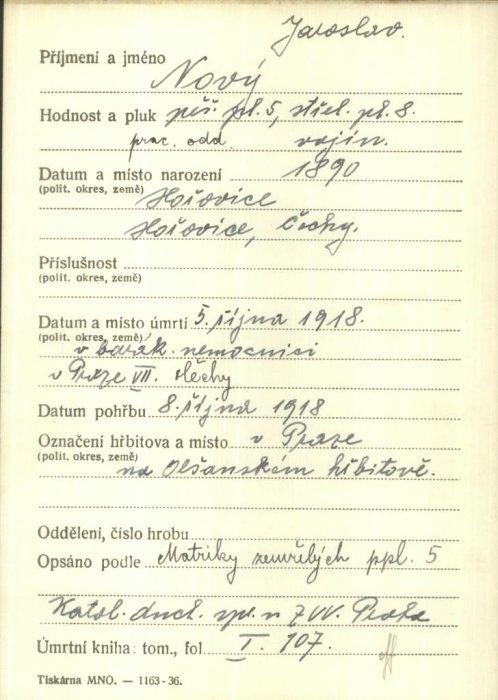 Jaroslav.
Příjmení a jméno
Nový
Hodnost a pluk pěš. pl. 5, střel. pl. 8.
prac. odd. vojín.
Datum a místo narození 1890
(polit. okres, země) Hořovice
Hořovice, Čechy.
Příslušnost
(polit. okres, země)
Datum a místo úmrtí 5. října 1918.
(polit. okres, země) v barák. nemocnici
v Praze VII. Čechy
Datum pohřbu 8. října 1918
Označení hřbitova a místo v Praze
(polit. okres, země) na Olšanském hřbitově.
Oddělení, číslo hrobu
Opsáno podle Matriky zemřelých ppl. 5
Katol. duch. spr. u ZVV. Praha
Úmrtní kniha: tom., fol I. 107.
Tiskárna MNO. — 1163-36.